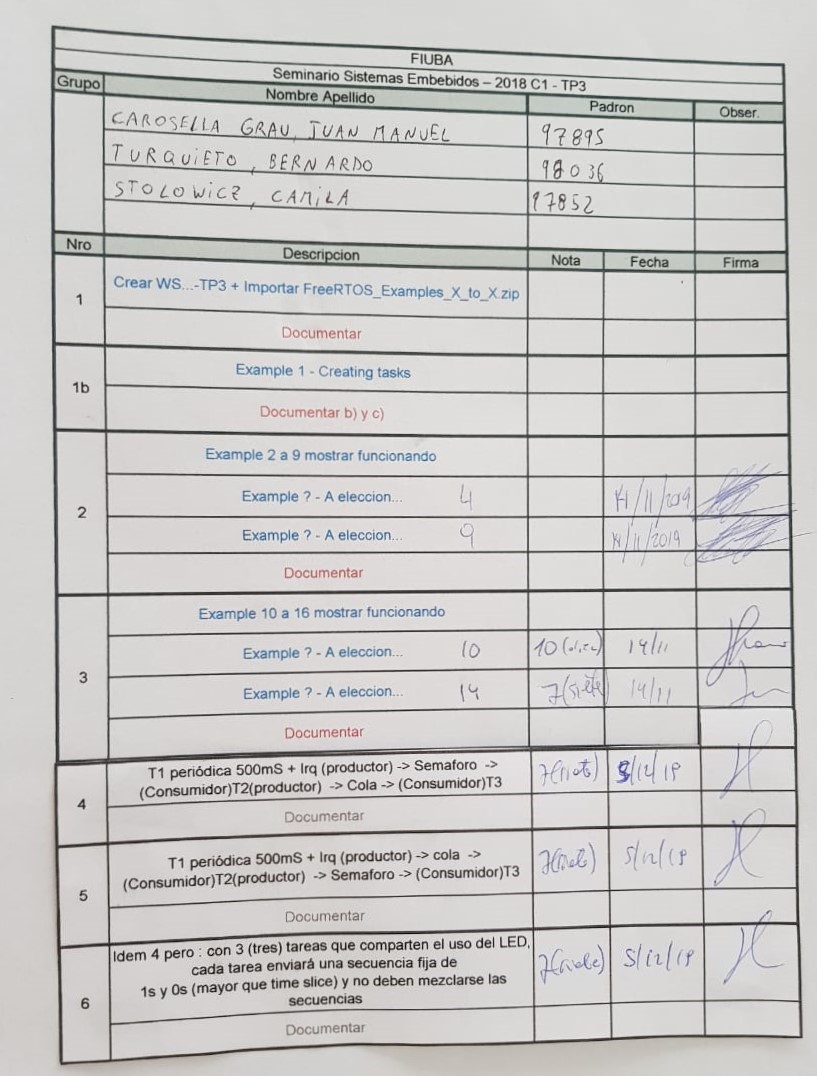 FIUBA
Seminario Sistemas Embebidos – 2018 C1 - TP3
Grupo Nombre Apellido Padron Obser.
CAROSELLA GRAU, JUAN MANUEL 97895
TURQUIETO, BERNARDO 98036
STOLOWICZ, CAMILA 97852
Nro Descripcion Nota Fecha Firma
1 Crear WS...-TP3 + Importar FreeRTOS_Examples_X_to_X.zip
Documentar
1b Example 1 - Creating tasks
Documentar b) y c)
2 Example 2 a 9 mostrar funcionando
Example ? - A eleccion... 4 14/11/2019
Example ? - A eleccion... 9 14/11/2019
Documentar
3 Example 10 a 16 mostrar funcionando
Example ? - A eleccion... 10 10 (diez) 14/11
Example ? - A eleccion... 14 7 (siete) 14/11
Documentar
4 T1 periódica 500mS + Irq (productor) -> Semaforo ->
(Consumidor)T2(productor) -> Cola -> (Consumidor)T3 7 (siete) 5/12/19
Documentar
5 T1 periódica 500mS + Irq (productor) -> cola ->
(Consumidor)T2(productor) -> Semaforo -> (Consumidor)T3 7 (siete) 5/12/19
Documentar
6 Idem 4 pero : con 3 (tres) tareas que comparten el uso del LED,
cada tarea enviará una secuencia fija de
1s y 0s (mayor que time slice) y no deben mezclarse las
secuencias 7 (siete) 5/12/19
Documentar